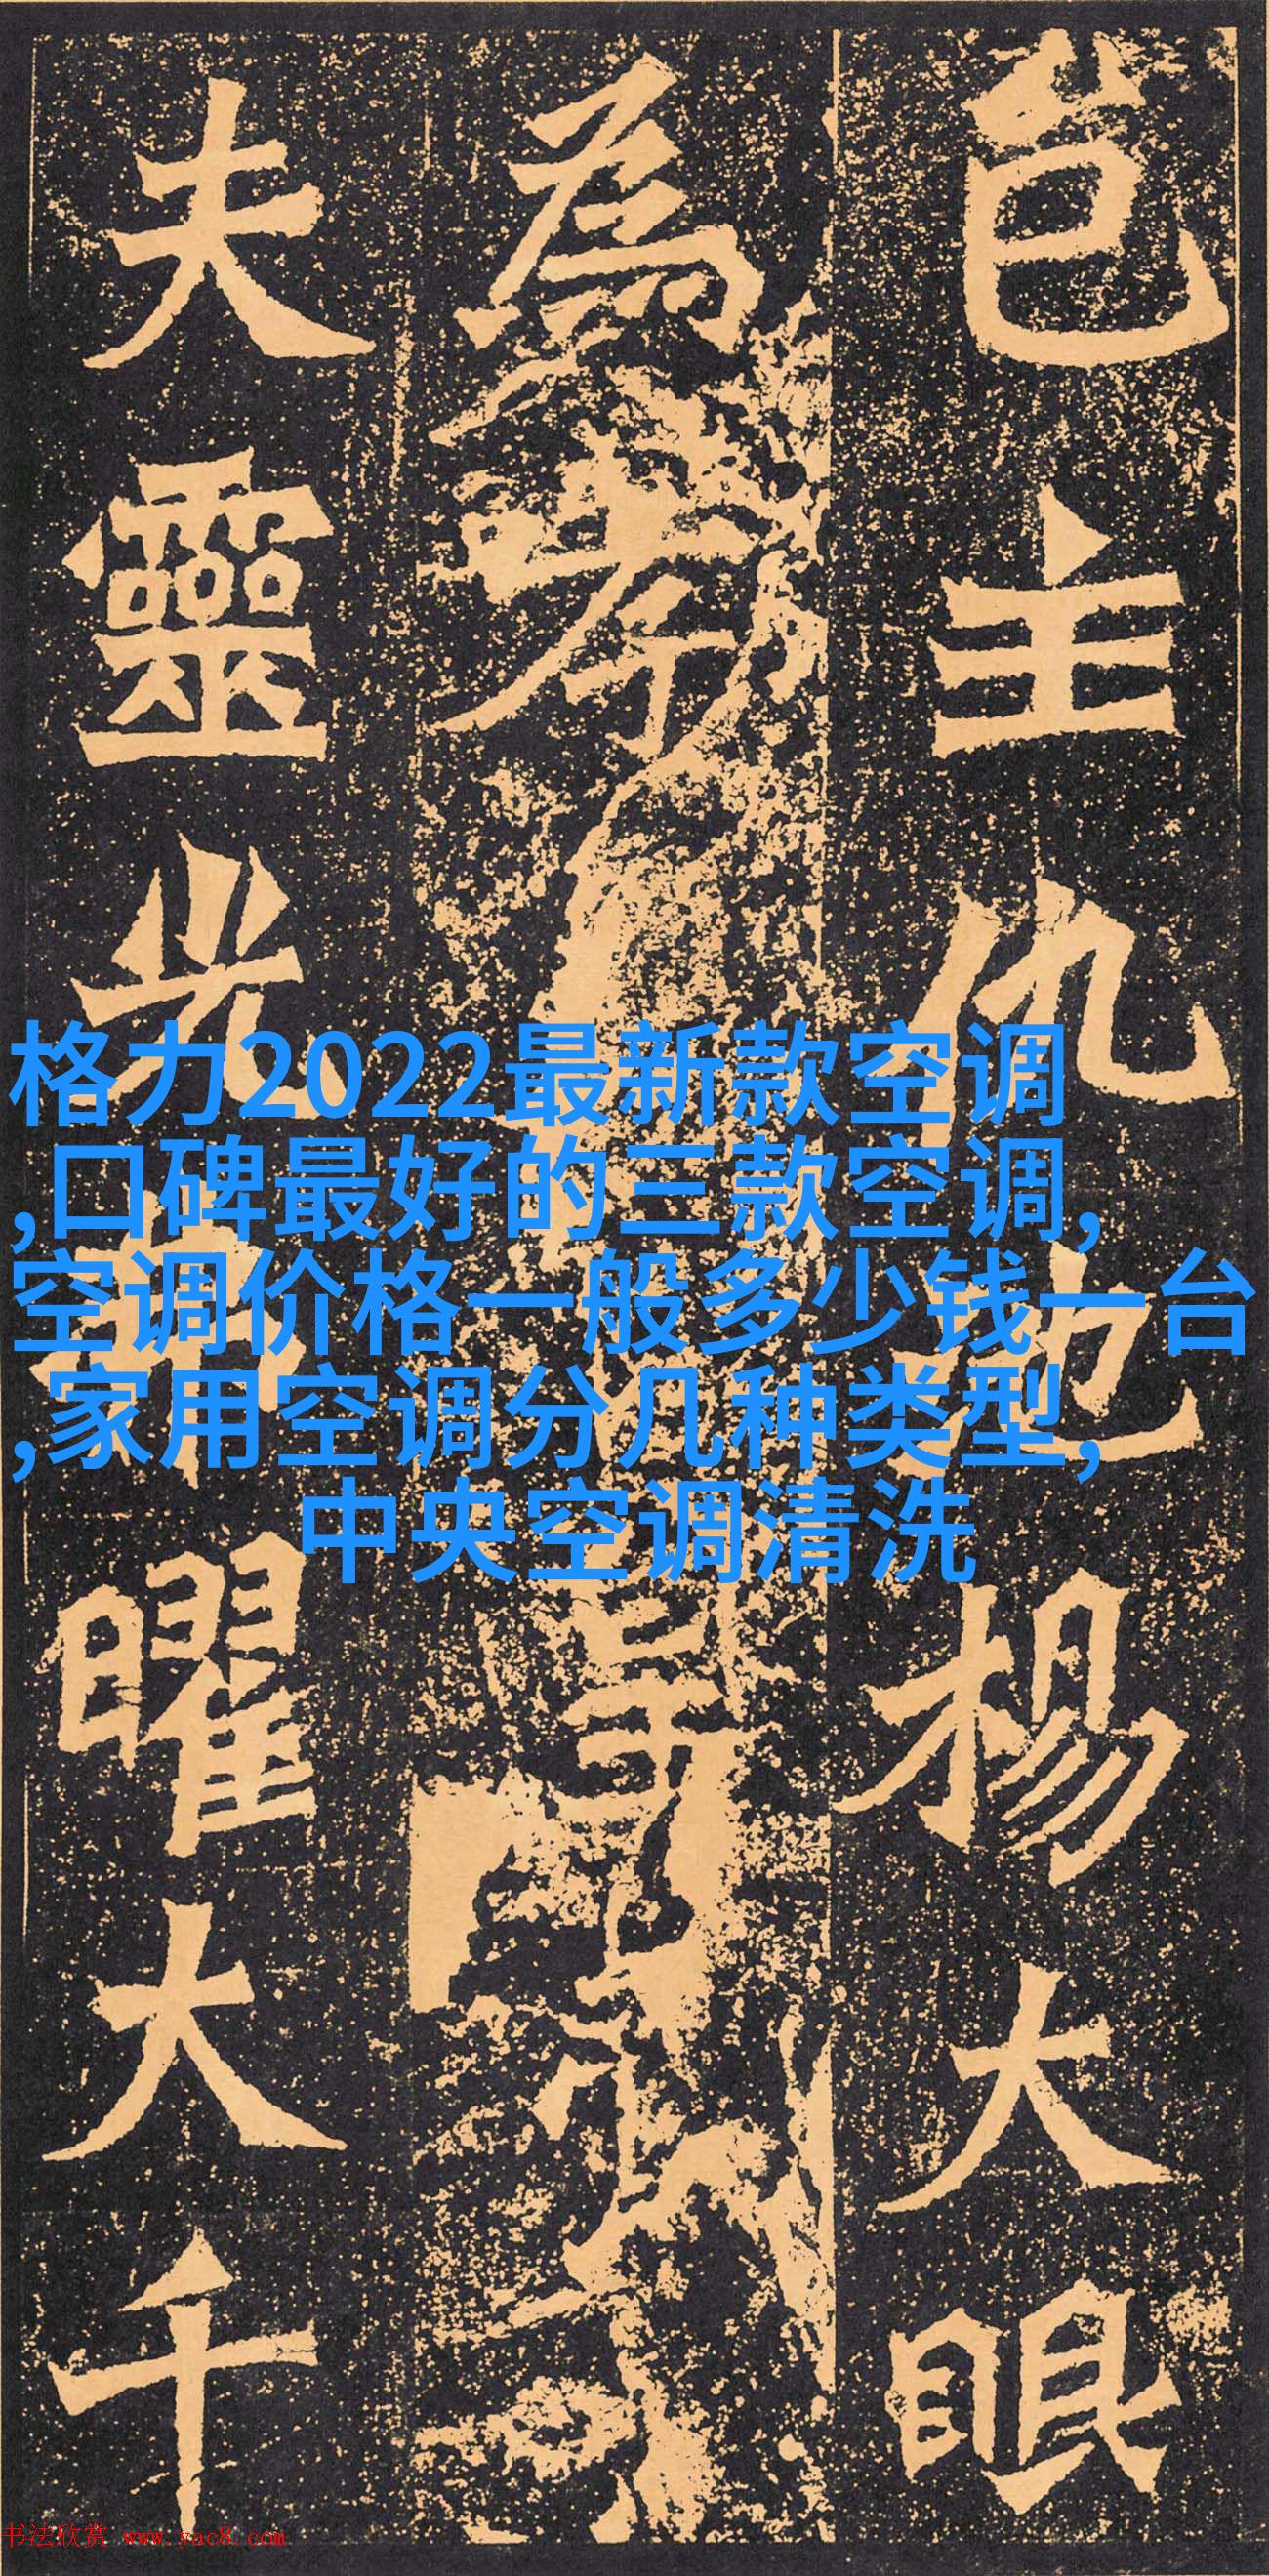 邑主仇池楊大眼
為孝
夫靈光弗曜大千
格力2022最新款空调
,口碑最好的三款空调,
空调价格一般多少钱一台
,家用空调分几种类型,
中央空调清洗
书法欣赏 www.yac8.com